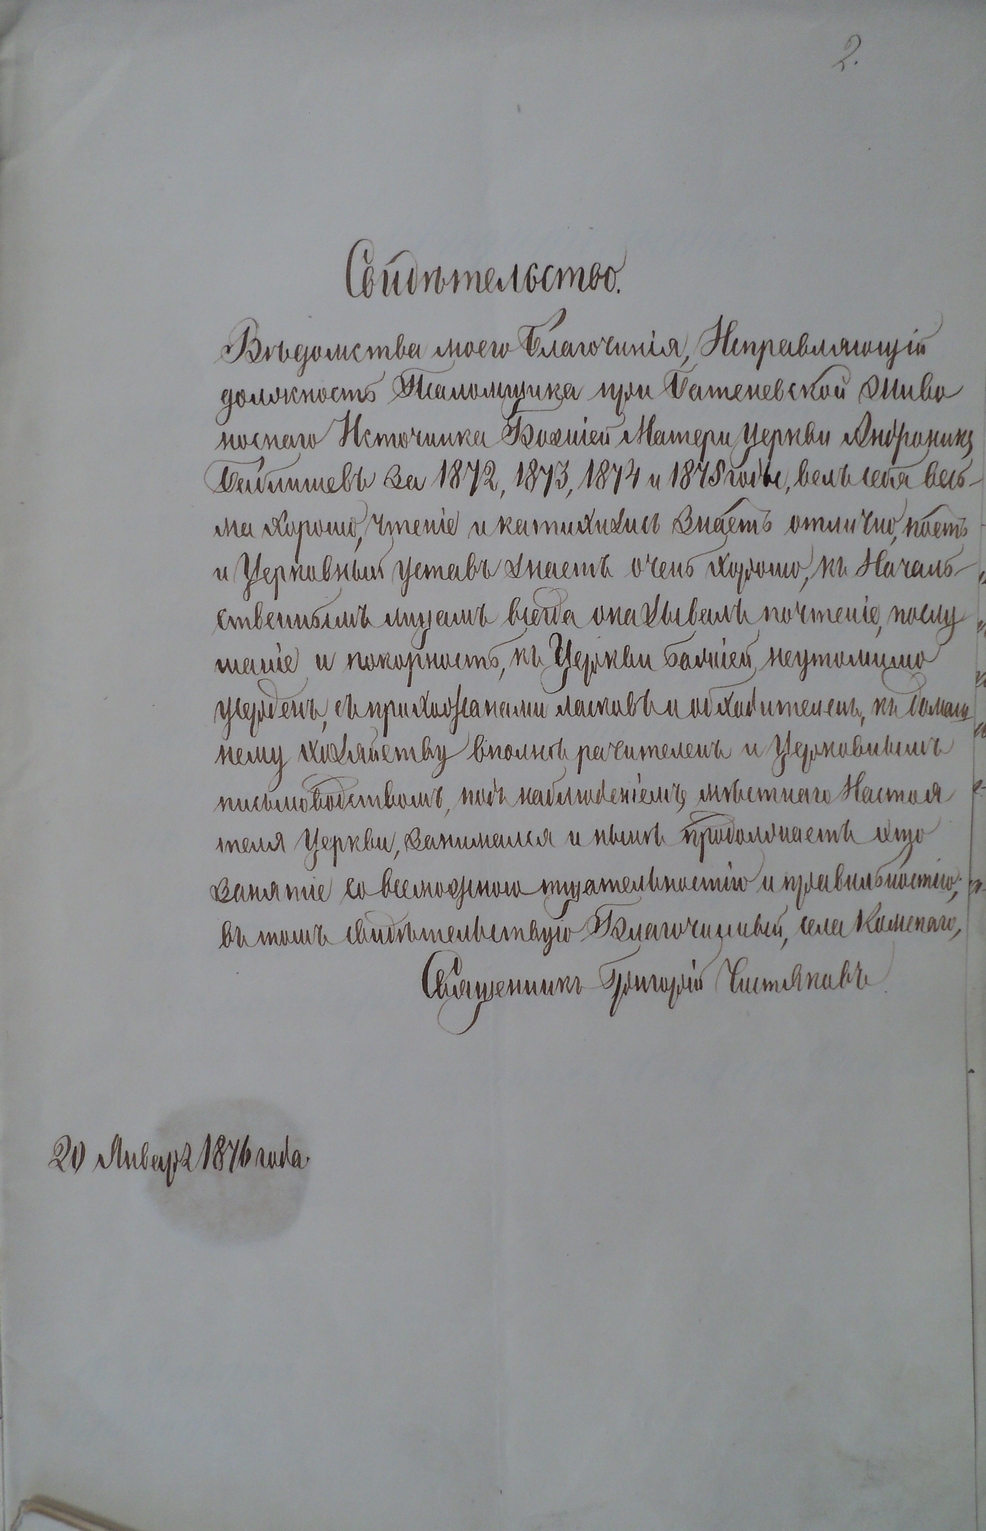 2.
Свидѣтельство.
Вѣдомства моего Благочинія, Исправляющій
должность Псаломщика при Батеневской Живо
носнаго Источника Божіей Матери Церкви Андроникъ
за 1872, 1873, 1874 и 1875 годы, велъ себя весь-
ма хорошо, чтеніе и катихизисъ знаетъ отлично, поетъ
и Церковный уставъ знаетъ очень хорошо, къ Началь-
ственнымъ лицамъ всегда оказывалъ почтеніе, послу
шаніе и покорность, къ Церкви Божіей неутомимо
усерденъ, съ прихожанами ласковъ и обходителенъ, къ домаш
нему хозяйству вполнѣ рачителенъ и Церковнымъ
письмоводствомъ, подъ наблюденіемъ мѣстнаго Настоя
теля Церкви, занимался и нынѣ продолжаетъ это
занятіе со всевозможною тщательностію и правильностію;
въ томъ свидѣтельствую Благочинный, села Каменнаго,
Священникъ Григорій Чистяковъ
20 Января 1876 года.